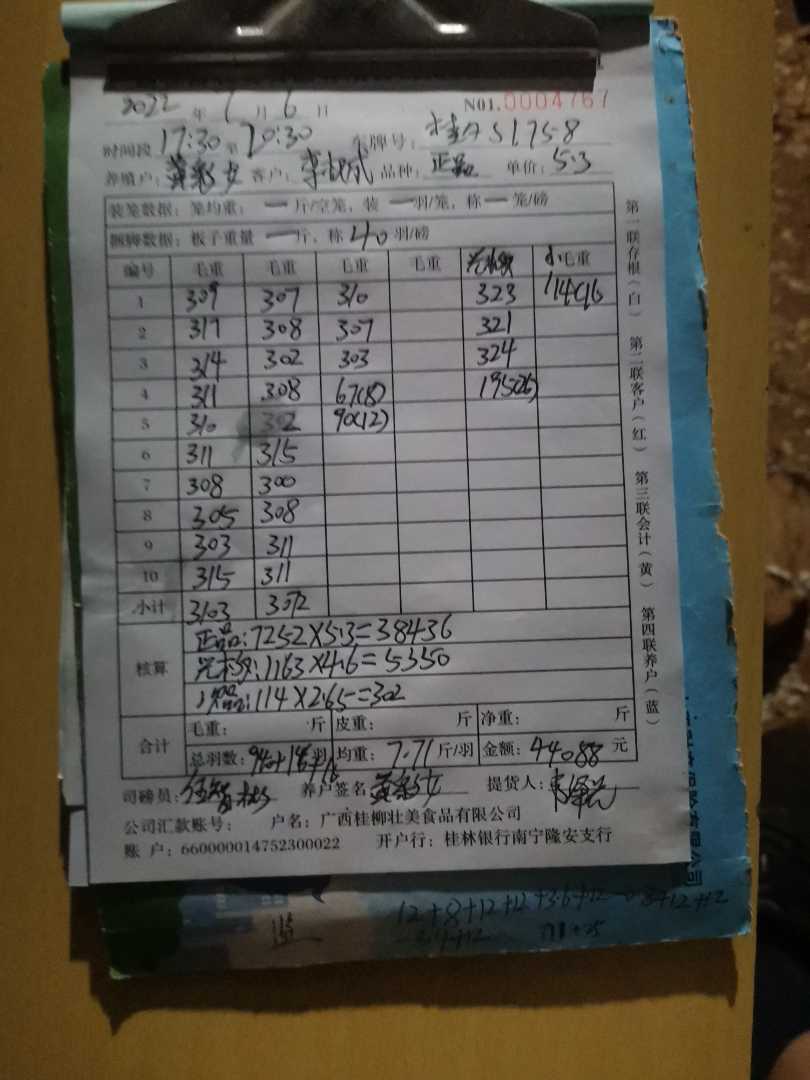 2022 年 7 月 6 日 N01.0004767
时间段 17:30 至 20:30 车牌号: 桂A S1758
养殖户: 黄彩女 客户: 李 成 品种: 正品 单价: 5.3
装笼数据: 笼均重: 一 斤/空笼, 装 一 羽/笼, 称 一 笼/磅
捆脚数据: 板子重量 一 斤, 称 40 羽/磅
编号 毛重 毛重 毛重 毛重 小毛重
1 309 307 310 323 114(16
2 317 308 307 321
3 314 302 303 324
4 311 308 67(8) 195(26)
5 310 302 90(12)
6 311 315
7 308 300
8 305 308
9 303 311
10 315 311
小计 3103 3072
核算
正品:7252×5.3=38436
:1163×4.6=5350
:114×2.65=302
合计
毛重: 斤 皮重: 斤 净重: 斤
总羽数: 940+146+16 羽 均重: 7.71 斤/羽 金额: 44088 元
司磅员: 养户签名: 黄彩女 提货人:
公司汇款账号: 户名: 广西桂柳壮美食品有限公司
账 户: 660000014752300022 开户行: 桂林银行南宁隆安支行
第一联存根(白) 第二联客户(红) 第三联会计(黄) 第四联养户(蓝)
有限公司
12+8+12+12+36+12